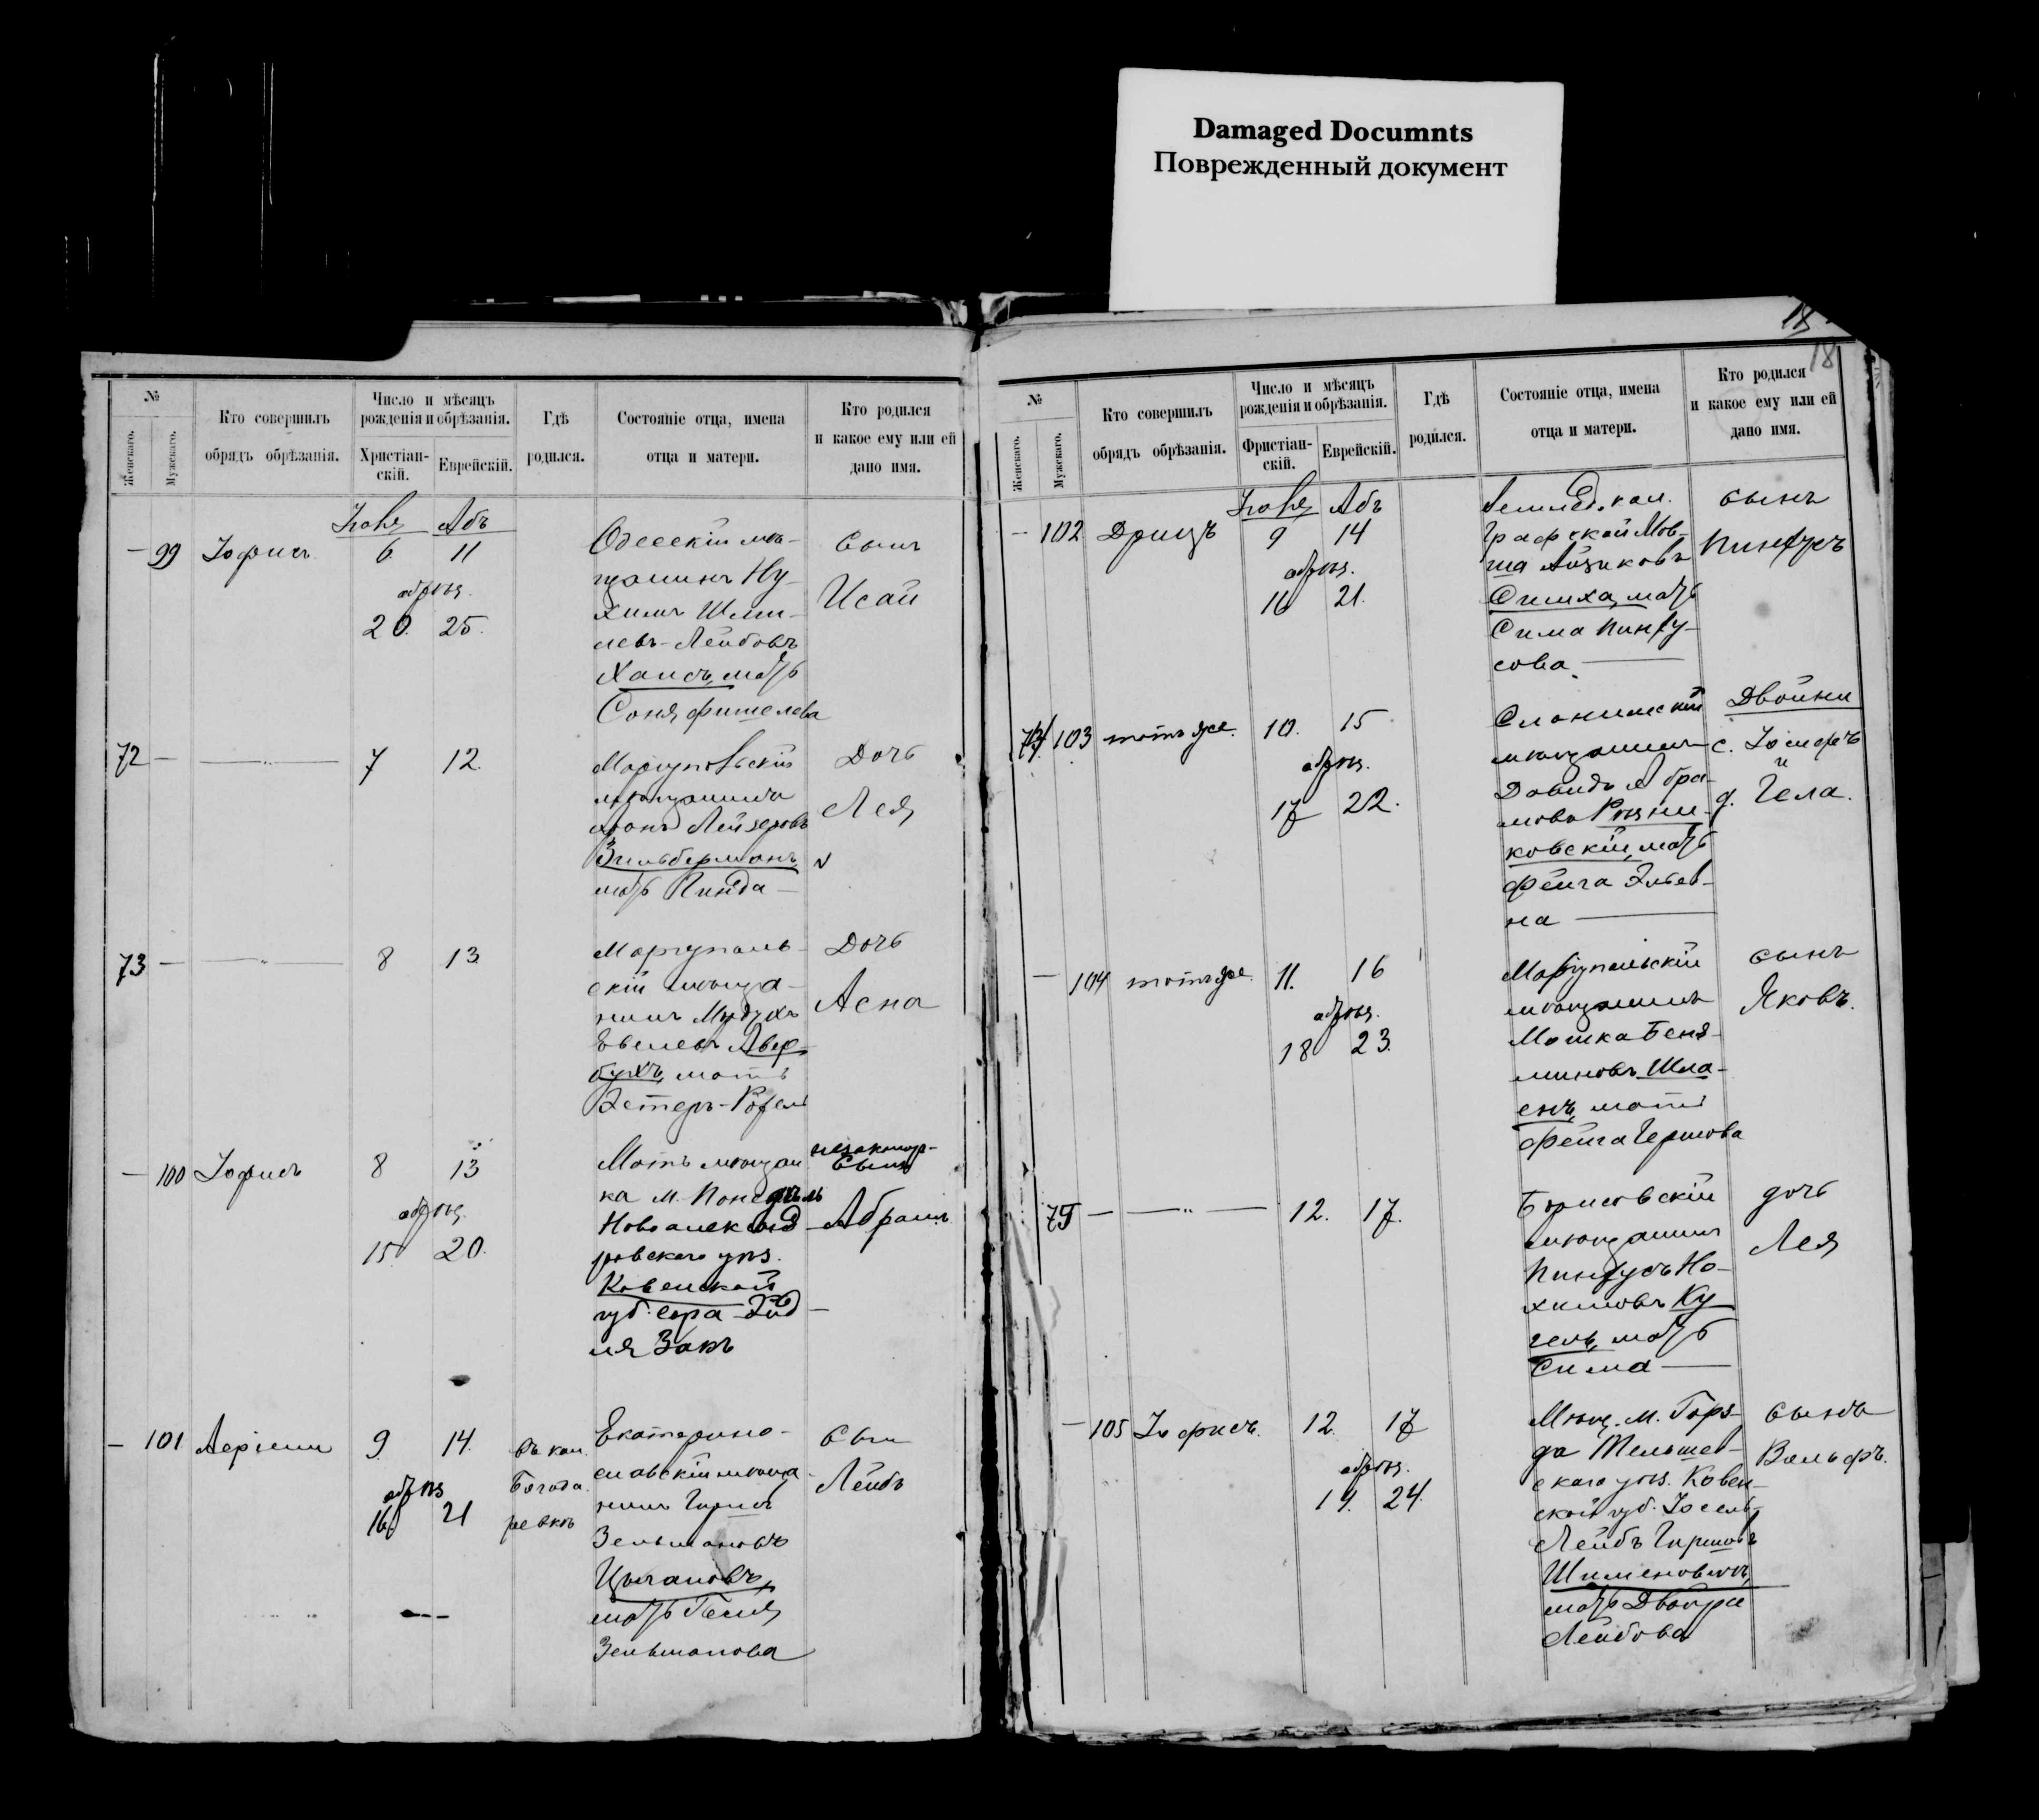 Damaged Documnts
Поврежденный документ
18
18
№
Женскаго.
Мужскаго.
Кто совершилъ
обрядъ обрѣзанія.
Число и мѣсяцъ
рожденія и обрѣзанія.
Христіан-
скій.
Еврейскій.
Гдѣ
родился.
Состояніе отца, имена
отца и матери.
Кто родился
и какое ему или ей
дано имя.
Абъ
— 99 Іофисъ 6 11
обрѣз.
20. 25.
Одесскій мѣ-
щанинъ Ну-
химъ Шми-
левъ-Лейбовъ
мать
Соня Фишелева
Сынъ
Исай
72 — — „ — 7 12.
Маріупольскій
мѣщанинъ
Лейзеровъ
Зильберманъ,
мать Линда —
Дочь
Лея
73 — — „ — 8 13.
Маріуполь-
скій мѣща-
нинъ Мордухъ
Евелевъ Авер-
бухъ, мать
Эстеръ-Рохель
Дочь
Асна
— 100 Іофисъ 8 13
обрѣз.
15. 20.
Мать мѣщан
ка м. Понедѣль
Новоалександ
ровскаго уѣз.
Ковенской
губ. Сора-
ля Закъ
незаконор-
Сынъ
Абрамъ
— 101 9. 14.
обрѣз
16. 21
въ кол.
Богода
ровкѣ
Екатерино-
славскій мѣща-
нинъ Гиршъ
Зельмановъ
Цыгановъ,
мать Гения
Зельманова
Сын
Лейбъ
№
Женскаго.
Мужскаго.
Кто совершилъ
обрядъ обрѣзанія.
Число и мѣсяцъ
рожденія и обрѣзанія.
Фристіан-
скій.
Еврейскій.
Гдѣ
родился.
Состояніе отца, имена
отца и матери.
Кто родился
и какое ему или ей
дано имя.
Абъ
— 102 Дрицъ 9 14
обрѣз.
16 21.
Землед. кол.
Графской Мов-
ша Айзиковъ
Симха, мать
Сима Пинху-
сова —
сынъ
Пинхусъ
74 103 тотъ же. 10. 15
обрѣз.
17 22.
Слонимскій
мѣщанинъ
Давидъ Абра-
мовъ Рѣзни-
ковскій, мать
Фейга Эльев-
на —
Двойни
с. Іосифъ
и
д. Гела.
— 104 тотъ же. 11. 16
обрѣз.
18 23.
Маріупольскій
мѣщанинъ
Мошка Беня-
миновъ Шла-
енъ, мать
Фейга Гершова
сынъ
Яковъ.
75 — — „ — 12. 17.
Борисовскій
мѣщанинъ
Пинхусъ Но-
химовъ Ку-
гель, мать
Сима —
дочь
Лея
— 105 Іофисъ. 12. 17
обрѣз.
19. 24.
Мѣщ. м. Горж-
да Тельшев-
скаго уѣз. Ковен-
ской губ. Іосель-
Лейбъ Гиршовъ
мать Двойра
Лейбова
сынъ
Вольфъ.